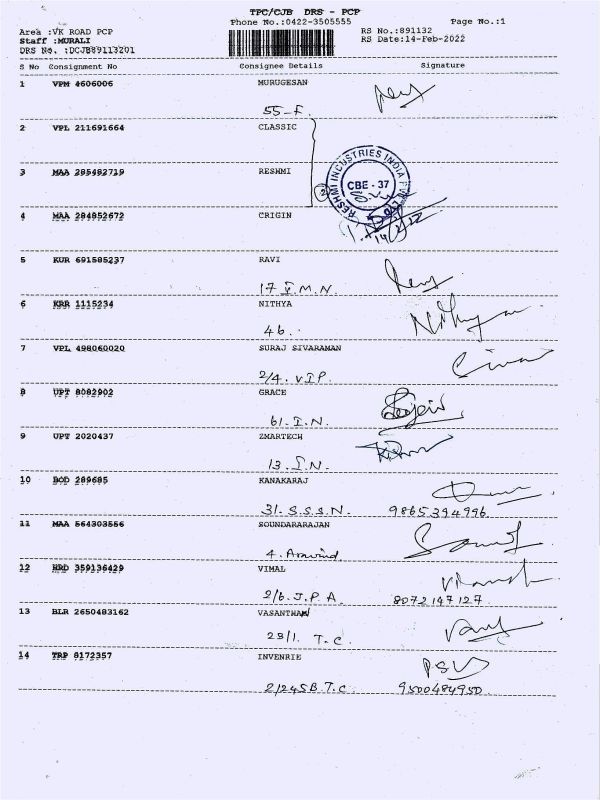 TPC/CJB DRS - PCP
Phone No.:0422-3505555
Page No.:1
Area :VK ROAD PCP
RS No.:891132
Staff :MURALI
RS Date:14-Feb-2022
DRS No. :DCJB89113201
S No Consignment No Consignee Details Signature
1 VPM 4606006 MURUGESAN
55-F.
2 VPL 211691664 CLASSIC
3 MAA 285482719 RESHMI
RESHMI INDUSTRIES INDIA
CBE - 37
4 MAA 284852672 CRIGIN
14/2/22
5 KUR 691585237 RAVI
17 I.M.N.
6 KRR 1115234 NITHYA
Nithya
46.
7 VPL 498060020 SURAJ SIVARAMAN
2/4. VIP.
8 UPT 8082902 GRACE
61. I.N.
9 UPT 2020437 ZMARTECH
13. I.N.
10 BOD 289685 KANAKARAJ
31. S.S.S.N. 9865394996
11 MAA 564303556 SOUNDARARAJAN
4. Aravind
12 HRD 359136429 VIMAL
2/6. J.P.A. 8072147127
13 BLR 2650483162 VASANTHAN
29/1. T.C.
14 TRP 8172357 INVENRIE
2/245B.T.C 9500484950